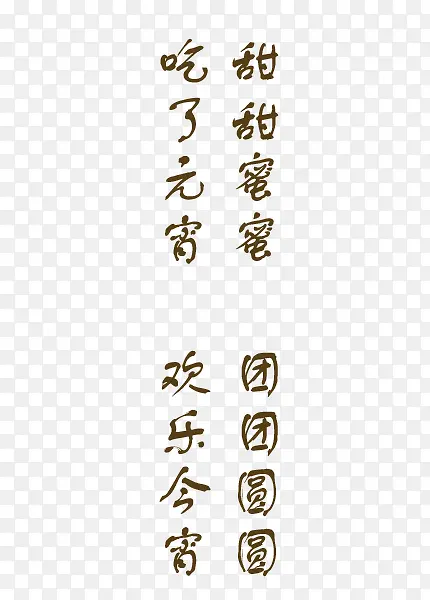 甜甜蜜蜜
吃了元宵
团团圆圆
欢乐今宵